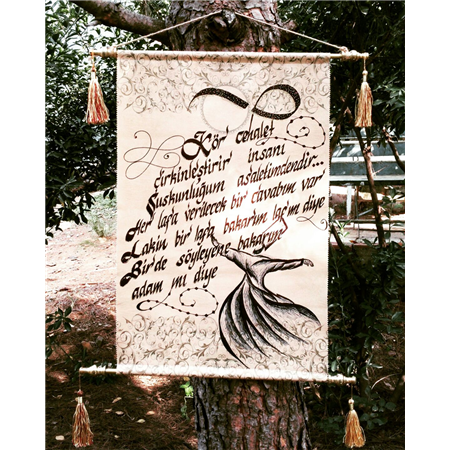 Kör cehalet
çirkinleştirir insanı
Suskunluğum asaletimdendir...
Her lafa verilecek bir cavabım var
Lakin bir lafa bakarım laf mı diye
Bir'de söyleyene bakarım
adam mı diye